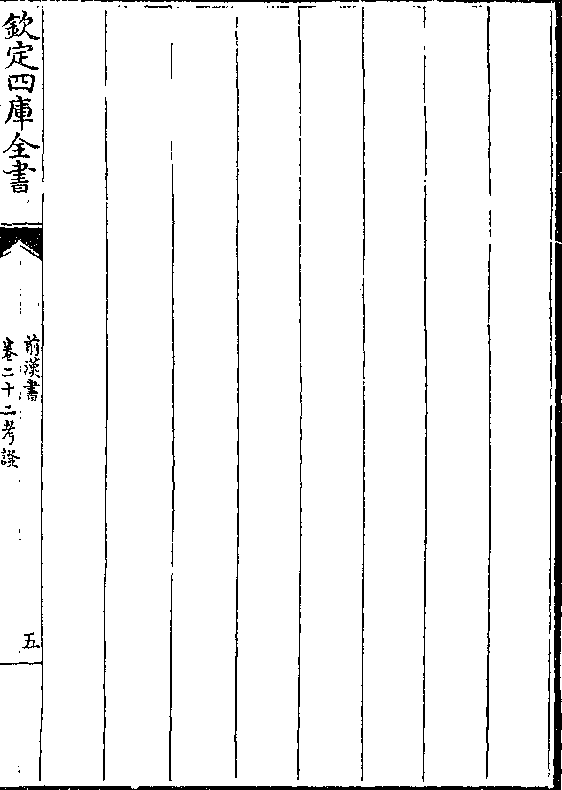 欽定四庫全書
前漢書
卷二十二考證
五